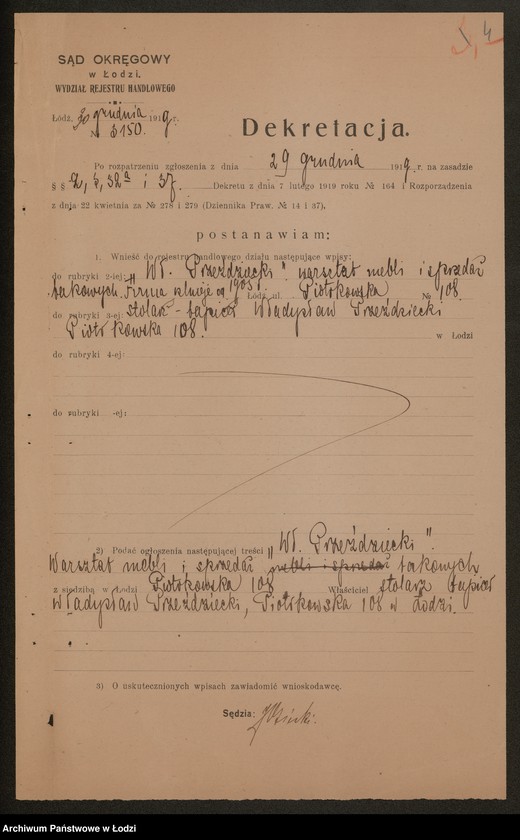 4
SĄD OKRĘGOWY
w Łodzi.
WYDZIAŁ REJESTRU HANDLOWEGO
Łódź, grudnia 1919 r.
№ 3150.
Dekretacja.
Po rozpatrzeniu zgłoszenia z dnia 29 grudnia 1919 r. na zasadzie
§ § 2, 5, 32a i 37. Dekretu z dnia 7 lutego 1919 roku № 164 i Rozporządzenia
z dnia 22 kwietnia za № 278 i 279 (Dziennika Praw. № 14 i 37),
postanawiam:
1. Wnieść do rejestru handlowego działu następujące wpisy:
do rubryki 2-iej: „Wł. Przeździecki" warsztat mebli i sprzedaż
takowych. Firma istnieje od 1905 r. Łódź, ul. Piotrkowska № 108.
do rubryki 3-ej: stolarz-tapicer Władysław Przeździecki
Piotrkowska 108. w Łodzi
do rubryki 4-ej:
do rubryki -ej:
2) Podać ogłoszenia następującej treści „Wł. Przeździecki".
Warsztat mebli i sprzedaż mebli i sprzedaż takowych
z siedzibą w Łodzi Piotrkowska 108 Właściciel stolarz tapicer
Władysław Przeździecki, Piotrkowska 108 w Łodzi.
3) O uskutecznionych wpisach zawiadomić wnioskodawcę.
Sędzia:
Archiwum Państwowe w Łodzi